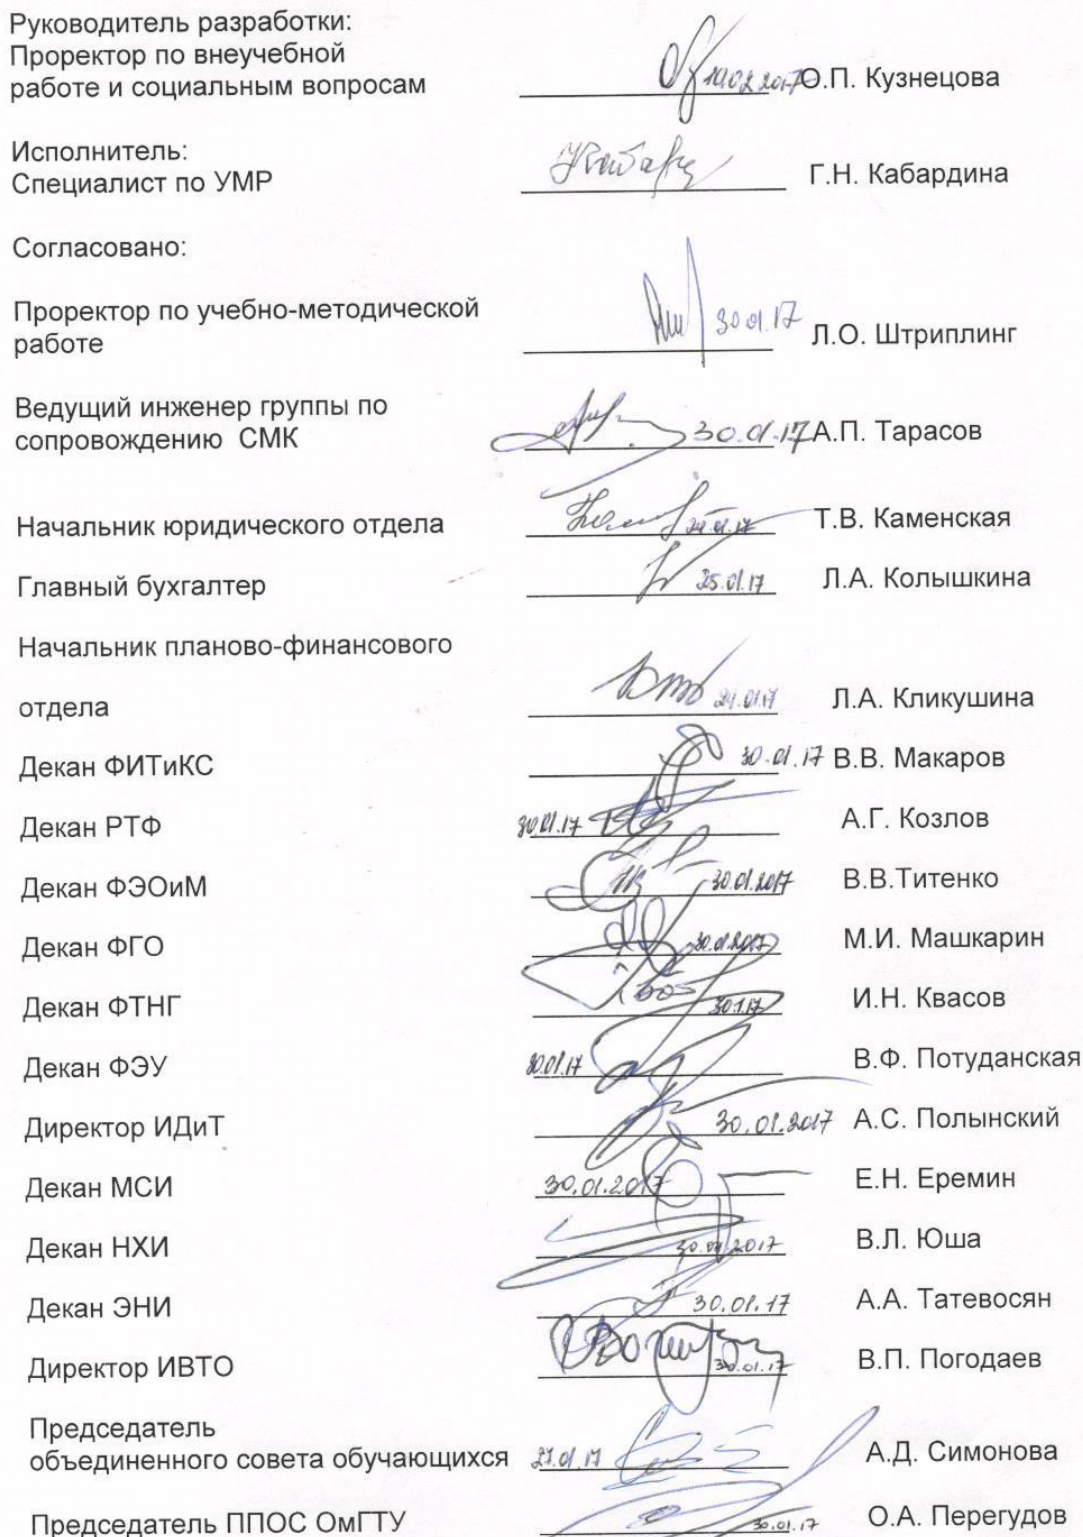 Руководитель разработки:
Проректор по внеучебной
работе и социальным вопросам О.П. Кузнецова
Исполнитель:
Специалист по УМР Г.Н. Кабардина
Согласовано:
Проректор по учебно-методической
работе 30.01.17 Л.О. Штриплинг
Ведущий инженер группы по
сопровождению СМК 30.01.17 А.П. Тарасов
Начальник юридического отдела Т.В. Каменская
Главный бухгалтер 25.01.17 Л.А. Колышкина
Начальник планово-финансового
отдела 24.01.17 Л.А. Кликушина
Декан ФИТиКС 30.01.17 В.В. Макаров
Декан РТФ 30.01.17 А.Г. Козлов
Декан ФЭОиМ 30.01.2017 В.В.Титенко
Декан ФГО 30.01.2017 М.И. Машкарин
Декан ФТНГ 30.1.17 И.Н. Квасов
Декан ФЭУ 30.01.17 В.Ф. Потуданская
Директор ИДиТ 30.01.2017 А.С. Полынский
Декан МСИ 30.01.2017 Е.Н. Еремин
Декан НХИ 30.01.2017 В.Л. Юша
Декан ЭНИ 30.01.17 А.А. Татевосян
Директор ИВТО 30.01.17 В.П. Погодаев
Председатель
объединенного совета обучающихся 27.01.17 А.Д. Симонова
Председатель ППОС ОмГТУ 30.01.17 О.А. Перегудов